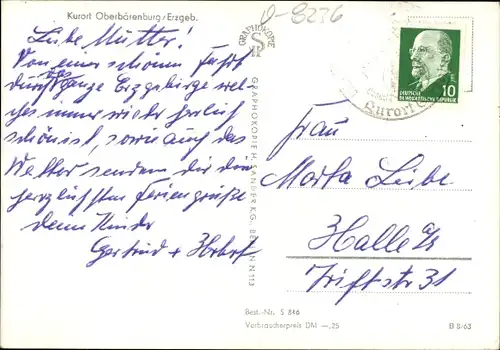 Kurort Oberbärenburg/Erzgeb.
D-8276
GRAPHOKOPIE
Liebe Mutter!
Von einer schönen Fahrt
durch das ganze Erzgebirge wel-
ches immer wieder herlich
schön ist, sowie auch das
Wetter senden dir die
herzlichsten Feriengrüße
deine Kinder
Gertrud + Herbert
GRAPHOKOPIE H. SANDER KG. BERLIN N 113
10
DEUTSCHE
DEMOKRATISCHE REPUBLIK
Kurort
Frau
Marta Liebe
Halle a/S
Triftstr 31
Best.-Nr. S 846
Verbraucherpreis DM —,25
B 8/63